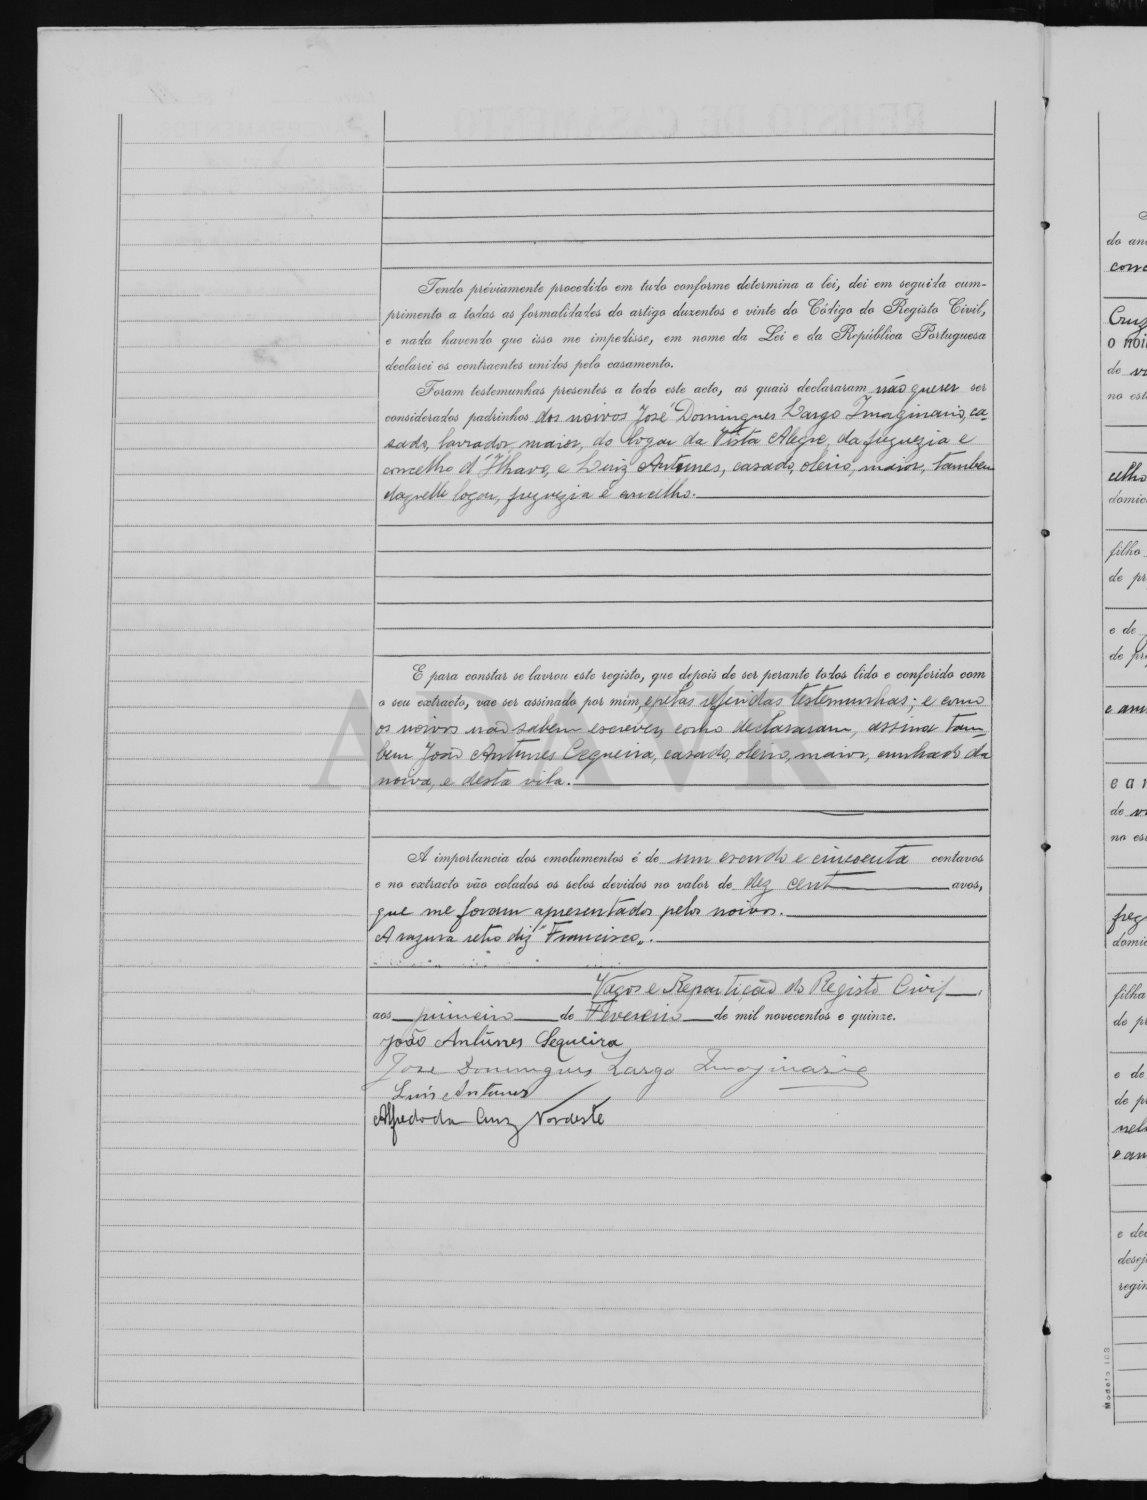 Tendo préviamente procedido em tudo conforme determina a lei, dei em seguida cum-
primento a todas as formalidades do artigo duzentos e vinte do Código do Registo Civil,
e nada havendo que isso me impedisse, em nome da Lei e da República Portuguesa
declarei os contraentes unidos pelo casamento.
Foram testemunhas presentes a todo este acto, as quais declararam não querer ser
considerados padrinhos dos noivos José Domingues Largo Imaginario, ca-
sado, lavrador, maior, do logar da Vista Alegre, da freguezia e
concelho d'Ilhavo, e Luiz Antunes, casado, oleiro, maior, tambem
daquelle logar, freguezia e concelho.
E para constar se lavrou este registo, que depois de ser perante todos lido e conferido com
o seu extracto, vae ser assinado por mim, e pelas referidas testemunhas; e como
os noivos não sabem escrever, como declararam, assina tam-
bem João Antunes Cequeira, casado, oleiro, maior, cunhado da
noiva, e desta vila.
ADAVR
A importancia dos emolumentos é de um escudo e cincoenta centavos
e no extracto vão colados os selos devidos no valor de dez cent avos,
que me foram apresentados pelos noivos.
A razura retro diz "Francisco".
Vagos e Repartição do Registo Civil,
aos primeiro de Fevereiro de mil novecentos e quinze.
João Antúnes Sequeira
Jose Domingues Largo Imaginario
Luís Antunes
Alfredo da Cruz Nordeste
do an
conc
Cruz
o noi
de vi
no est
celho
domic
filho
de pr
e de
de pr
e am
e a r
de vi
no es
freg
domic
filha
de p
e de
de p
nel
e am
e de
desej
regin
Modelo 103